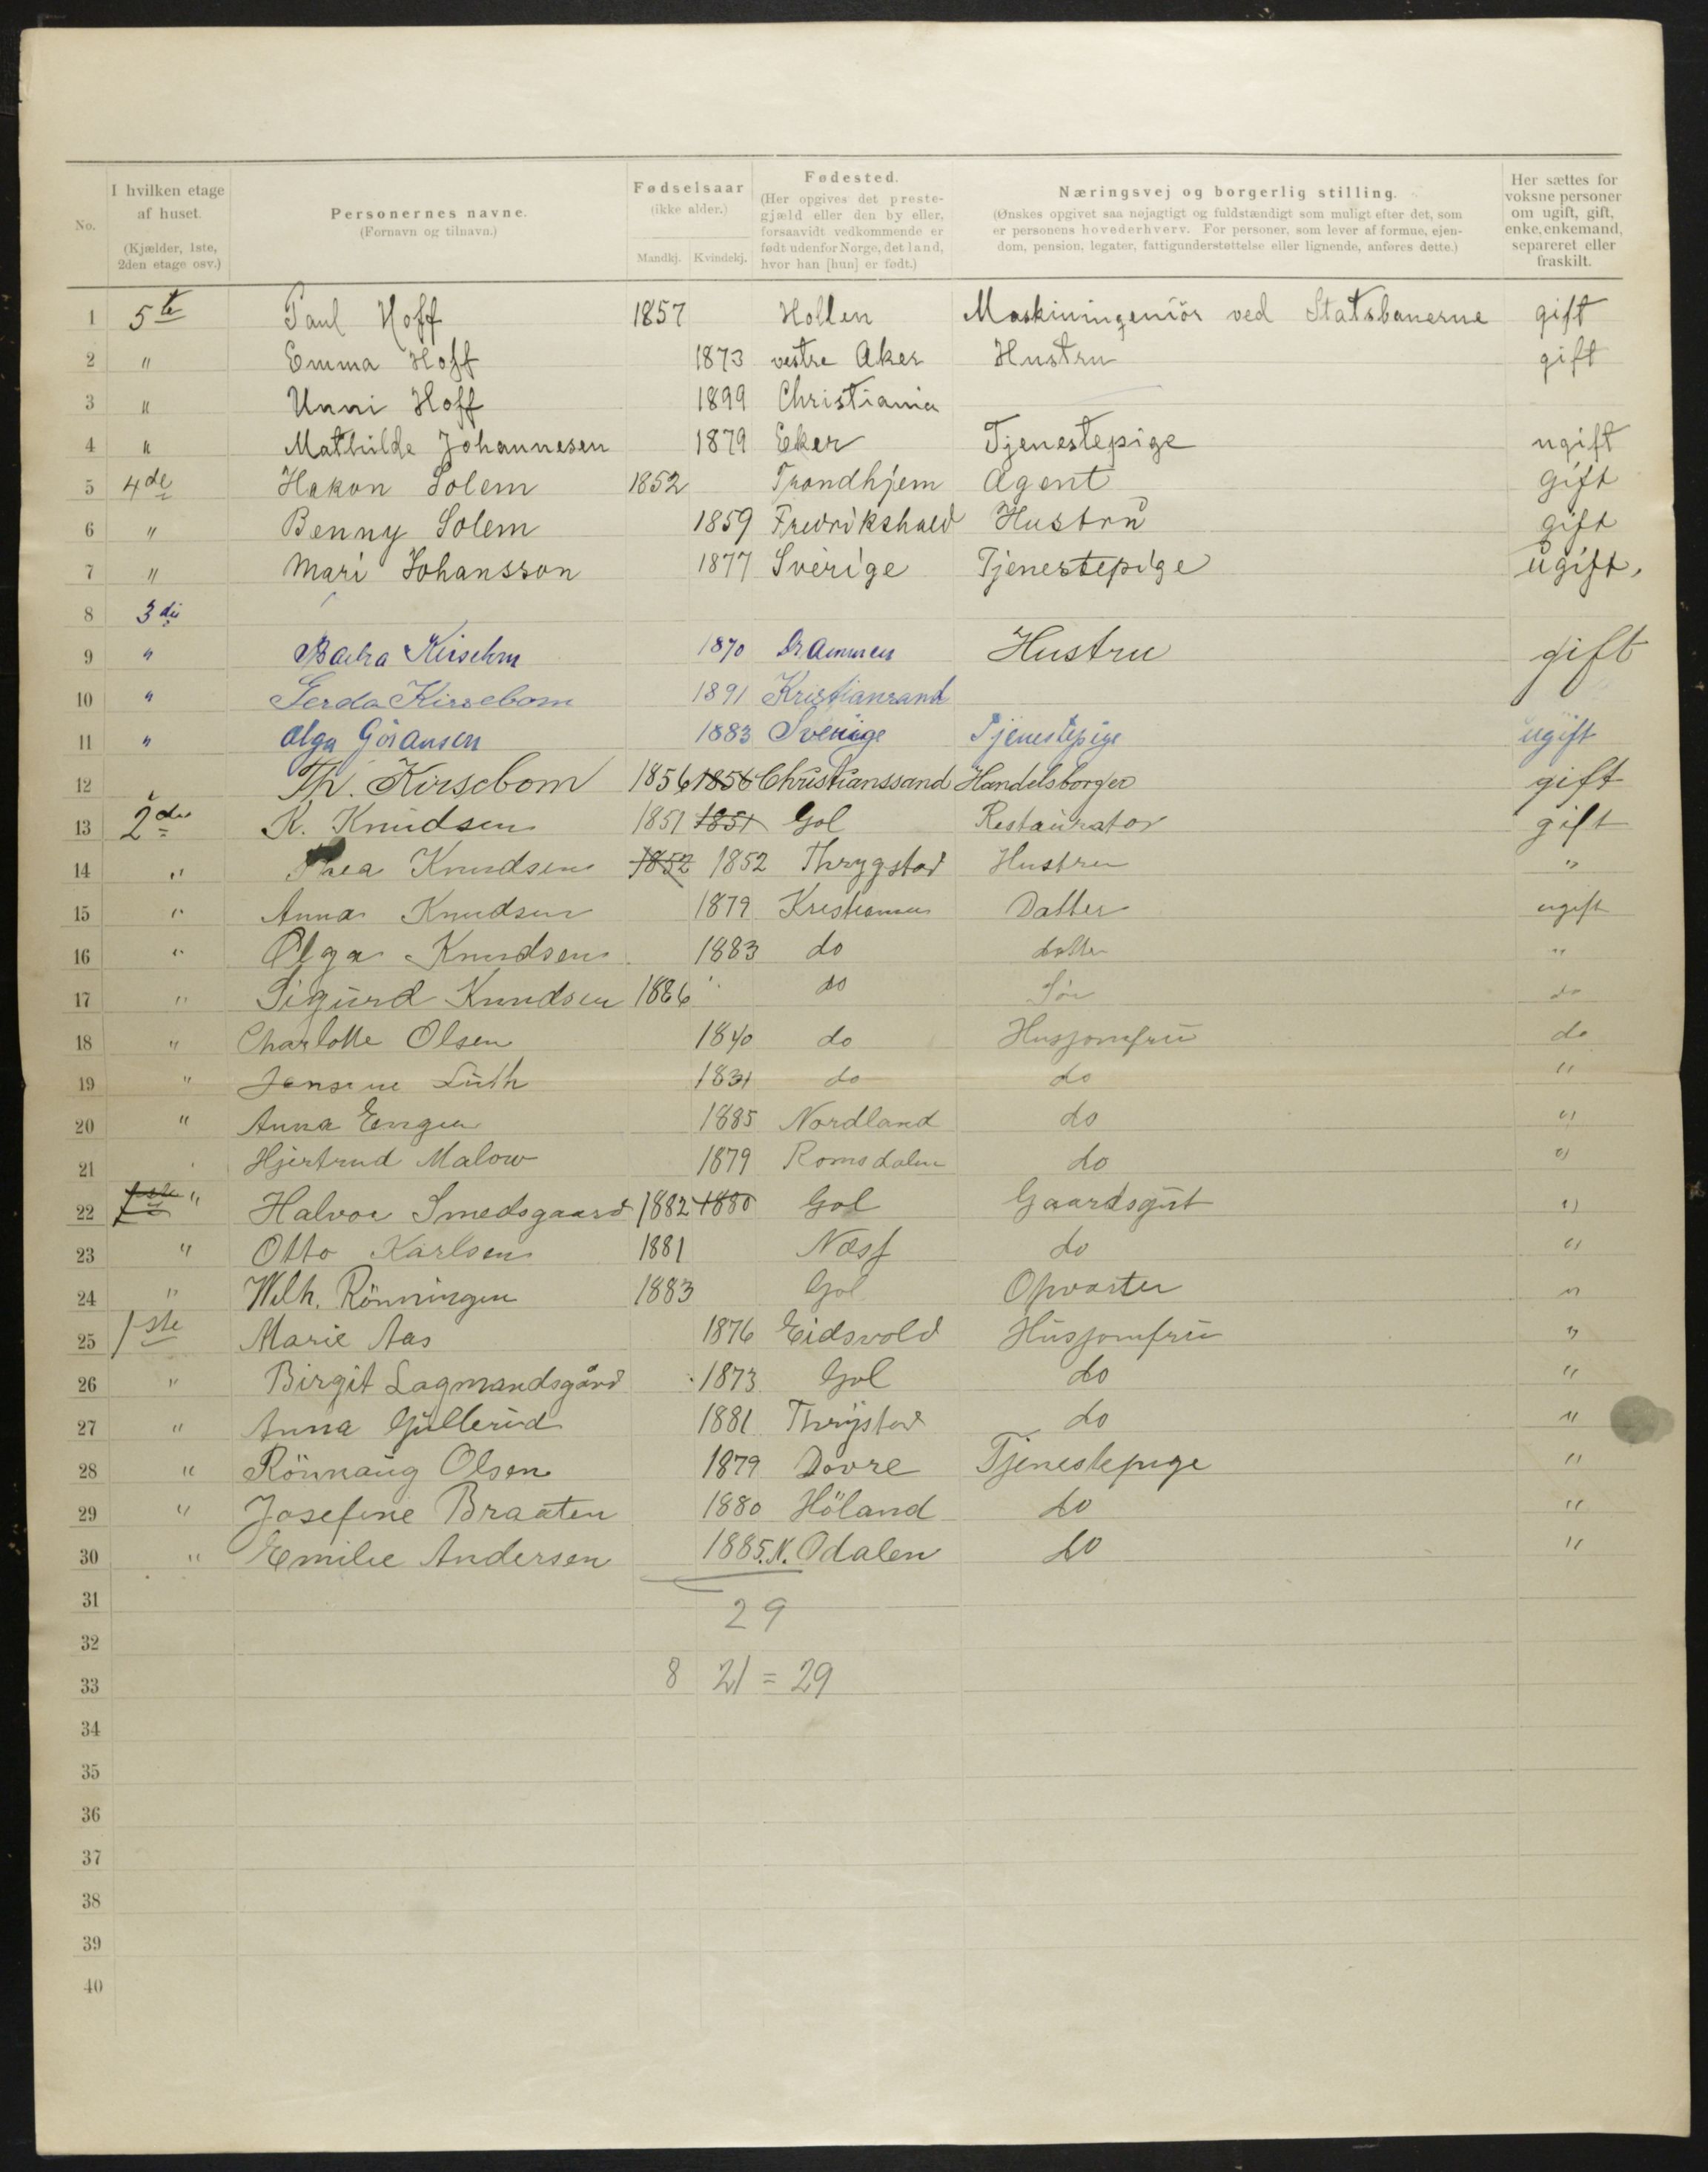 No. I hvilken etage af huset. (Kjælder, 1ste, 2den etage osv.) Personernes navne. (Fornavn og tilnavn.) Fødselsaar (ikke alder.) Mandkj. Kvindekj. Fødested. (Her opgives det prestegjæld eller den by eller, forsaavidt vedkommende er født udenfor Norge, det land, hvor han [hun] er født.) Næringsvej og borgerlig stilling. (Ønskes opgivet saa nøjagtigt og fuldstændigt som muligt efter det, som er personens hovederhverv. For personer, som lever af formue, ejendom, pension, legater, fattigunderstøttelse eller lignende, anføres dette.) Her sættes for voksne personer om ugift, gift, enke, enkemand, separeret eller fraskilt.
1 5te Paul Hoff 1857 Hollen Maskiningeniör ved Statsbanerne gift
2 " Emma Hoff 1873 vestre Aker Hustru gift
3 " Unni Hoff 1899 Christiania
4 " Mathilde Johannesen 1879 Eker Tjenestepige ugift
5 4de Hakon Solem 1852 Trondhjem Agent gift
6 " Benny Solem 1859 Fredrikshald Hustru gift
7 " Mari Johansson 1877 Sverige Tjenestepige ugift,
8 3die
9 " 1870 Drammen Hustru gift
10 " Gerda Kirsebom 1891 Kristiansand
11 " Olga Göransen 1883 Sverige Tjenestepige ugift
12 Th. Kirsebom 1856 1856 Christianssand Handelsborger gift
13 2den K. Knudsen 1851 1851 Gol Restauratør gift
14 " Thea Knudsen 1852 1852 Thrygstad Hustru "
15 " Anna Knudsen 1879 Kristiania Datter ugift
16 " Olga Knudsen 1883 do datter "
17 " Sigurd Knudsen 1886 do Sön do
18 " Charlotte Olsen 1840 do Husjomfru do
19 " Jensine Lüth do do "
20 " Anna Engen 1885 Nordland do "
21 Hjertrud Malow 1879 Romsdalen do "
22 1ste " Halvor Smedsgaard 1882 1880 Gol Gaardsgut "
23 " Otto Karlsen 1881 Næs do "
24 " Wilh. Rönningen 1883 Gol Opvarter "
25 1ste Marie Aas 1876 Eidsvold Husjomfru "
26 " Birgit Lagmandsgård 1873 Gol do "
27 " Anna Gullerud 1881 Thrygstad do "
28 " Rönnaug Olsen 1879 Dovre Tjenestepige "
29 " Josefine Braaten 1880 Höland do "
30 " Emilie Andersen 1885 N. Odalen do "
31 29
32
33 8 21 = 29
34
35
36
37
38
39
40